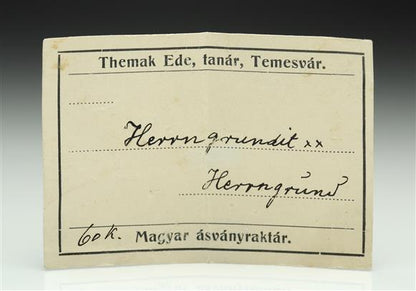 Themak Ede, tanár, Temesvár.
Herrngrundit xx
Herrngrund
60 k. Magyar ásványraktár.